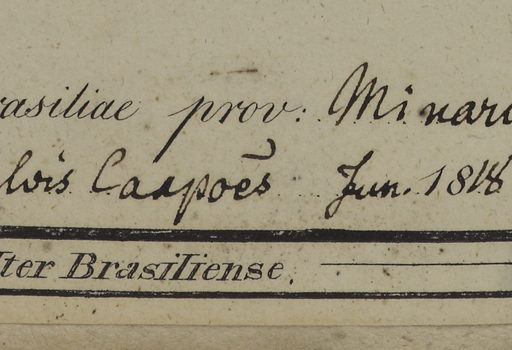 rasiliae prov: Minaru
lvis Caapoēs Jun. 1818
Iter Brasiliense.